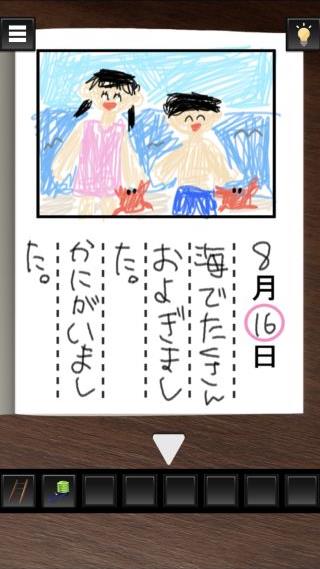 8月16日
海でたくさん
およぎまし
た。
かにがいまし
た。